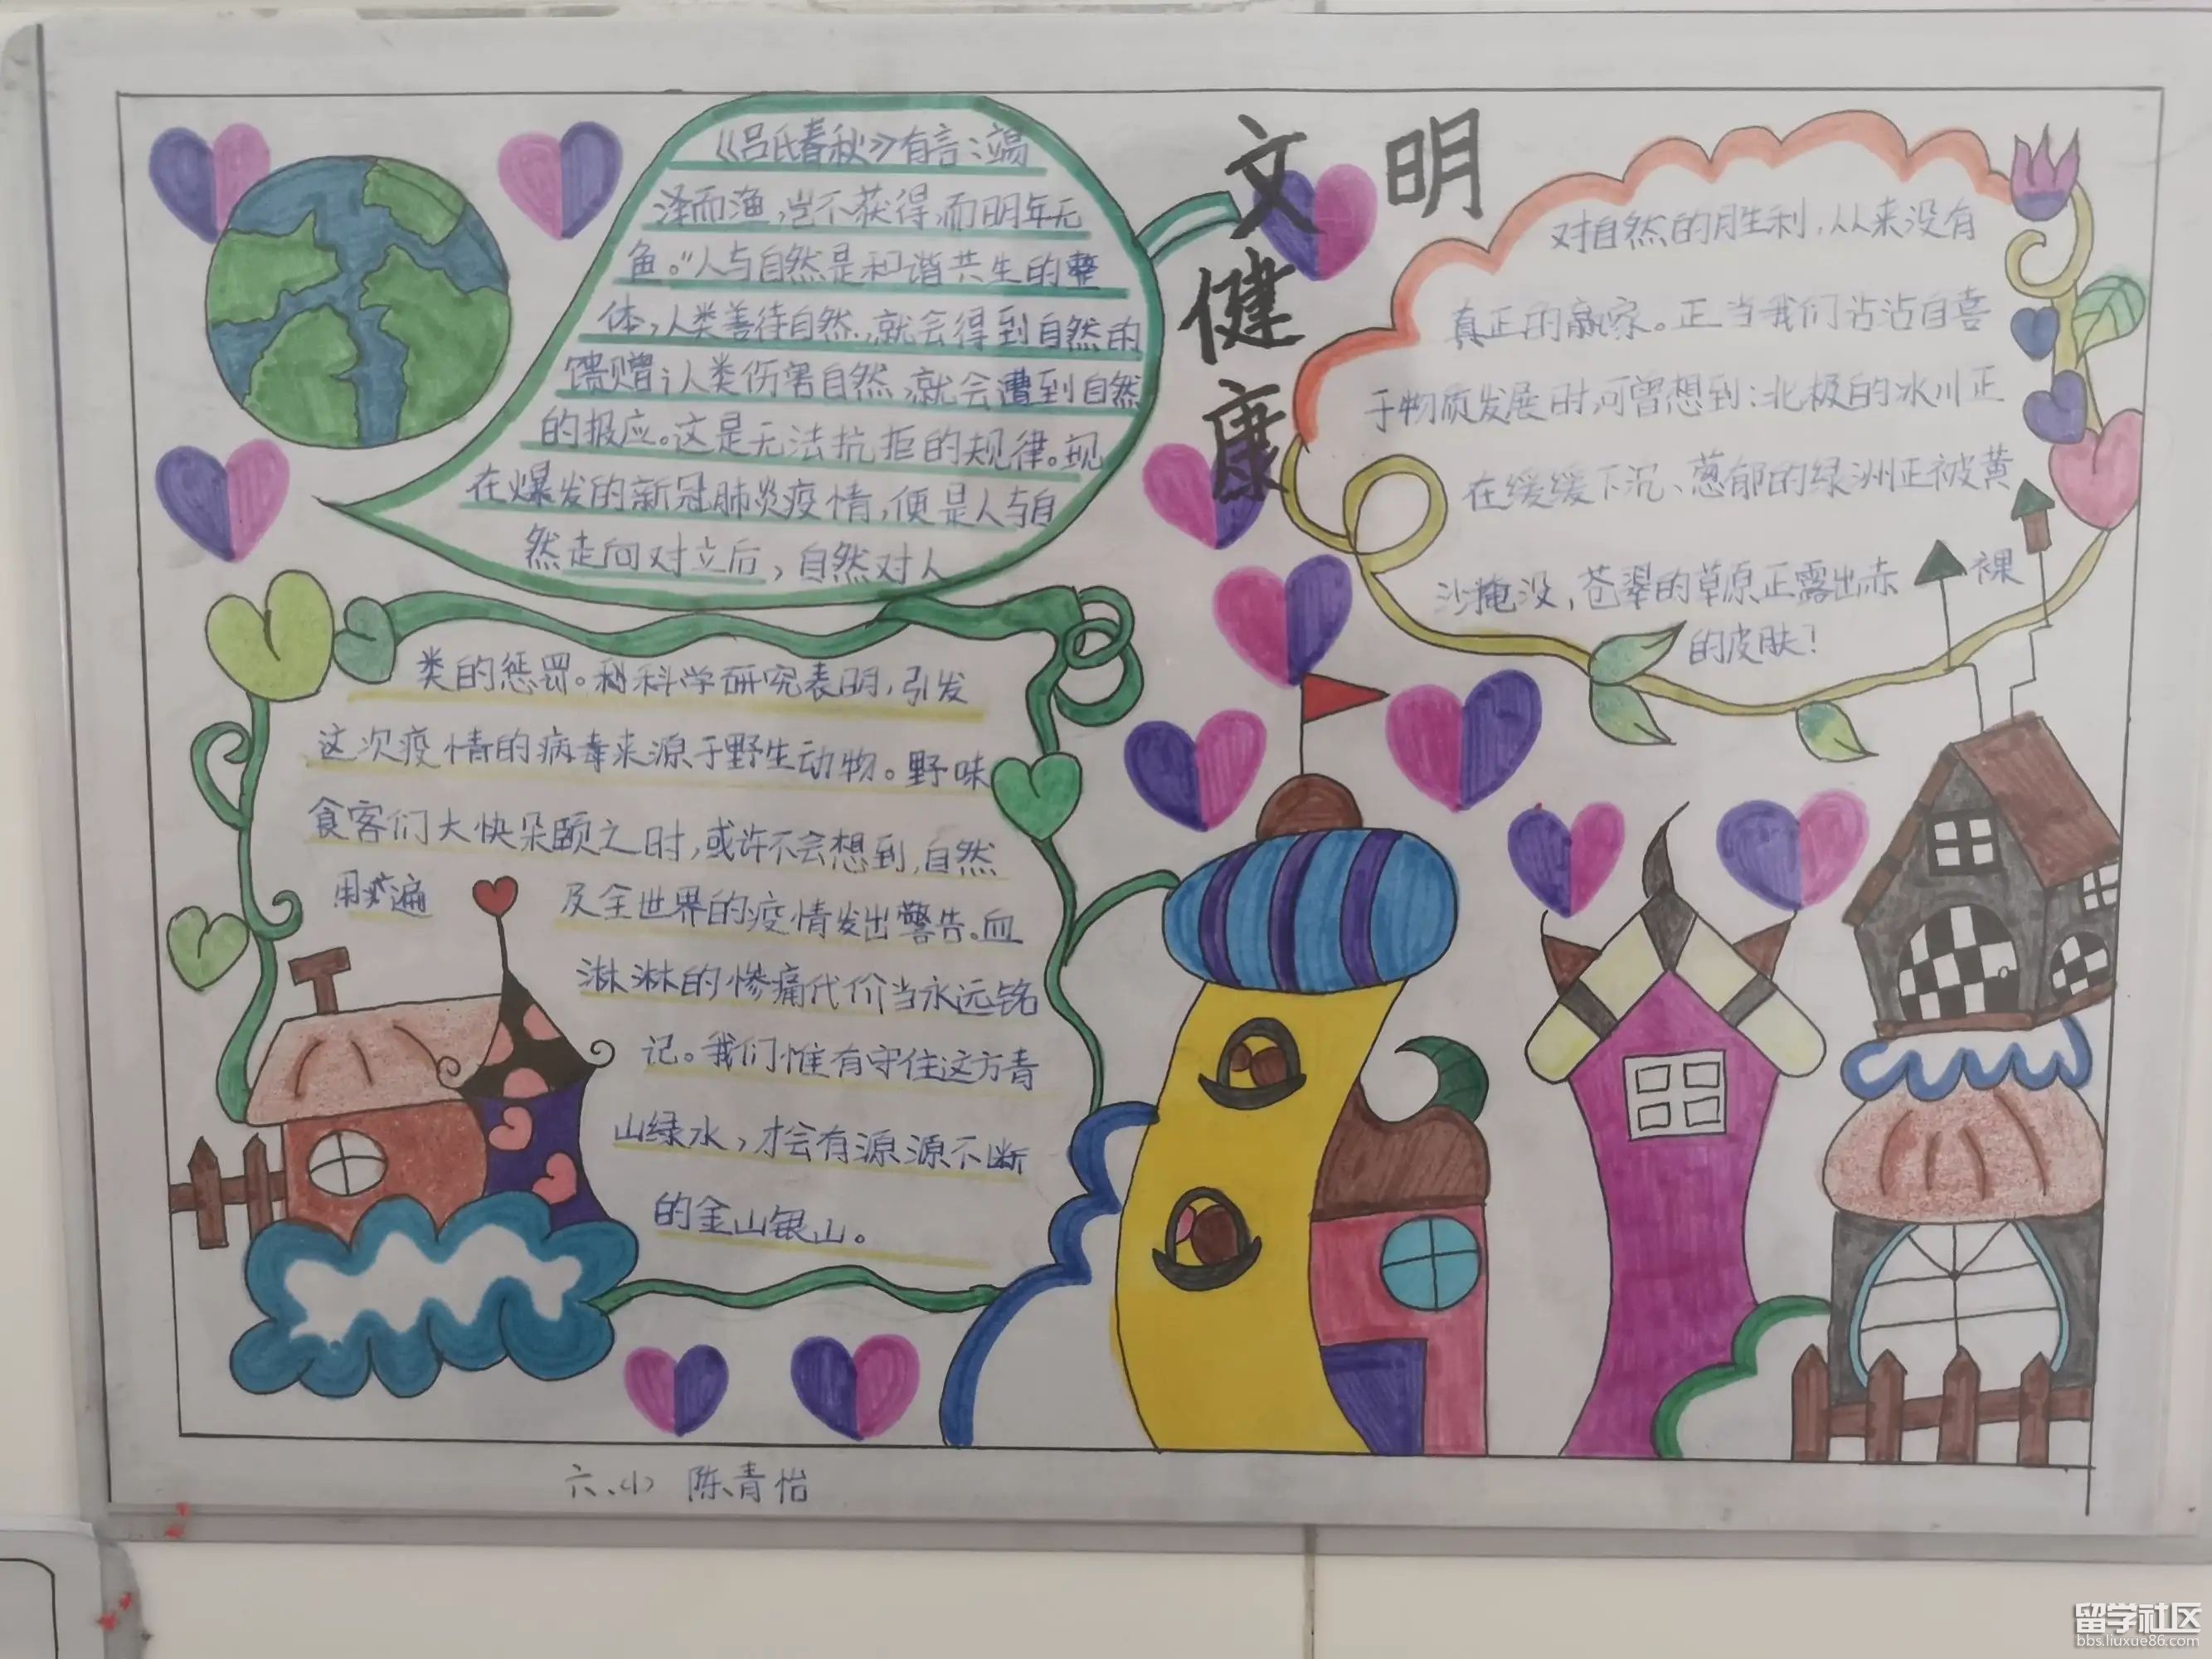 文 明
健
康
《吕氏春秋》有言：竭
泽而渔，岂不获得，而明年无
鱼。"人与自然是和谐共生的整
体，人类善待自然，就会得到自然的
馈赠；人类伤害自然，就会遭到自然
的报应。这是无法抗拒的规律。现
在爆发的新冠肺炎疫情，便是人与自
然走向对立后，自然对人
类的惩罚。科学研究表明，引发
这次疫情的病毒来源于野生动物。野味
食客们大快朵颐之时，或许不会想到，自然
用 遍 及全世界的疫情发出警告。血
淋淋的惨痛代价当永远铭
记。我们惟有守住这方青
山绿水，才会有源源不断
的金山银山。
对自然的胜利，从来没有
真正的赢家。正当我们沾沾自喜
于物质发展时，可曾想到：北极的冰川正
在缓缓下沉、葱郁的绿洲正被黄
沙掩没，苍翠的草原正露出赤 裸
的皮肤！
陈青怡
留学社区
bbs.liuxue86.com